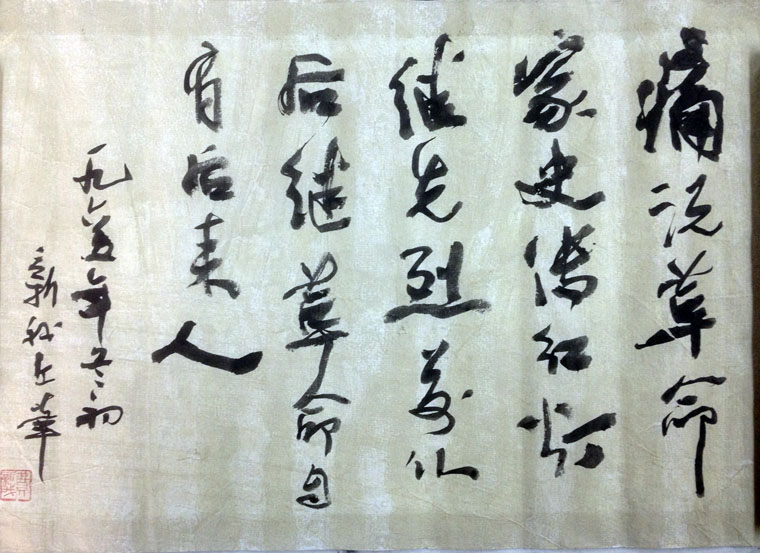 痛说革命
家史传红灯
继先烈前仆
后继革命自
有后来人
一九六五年冬初
新我左筆